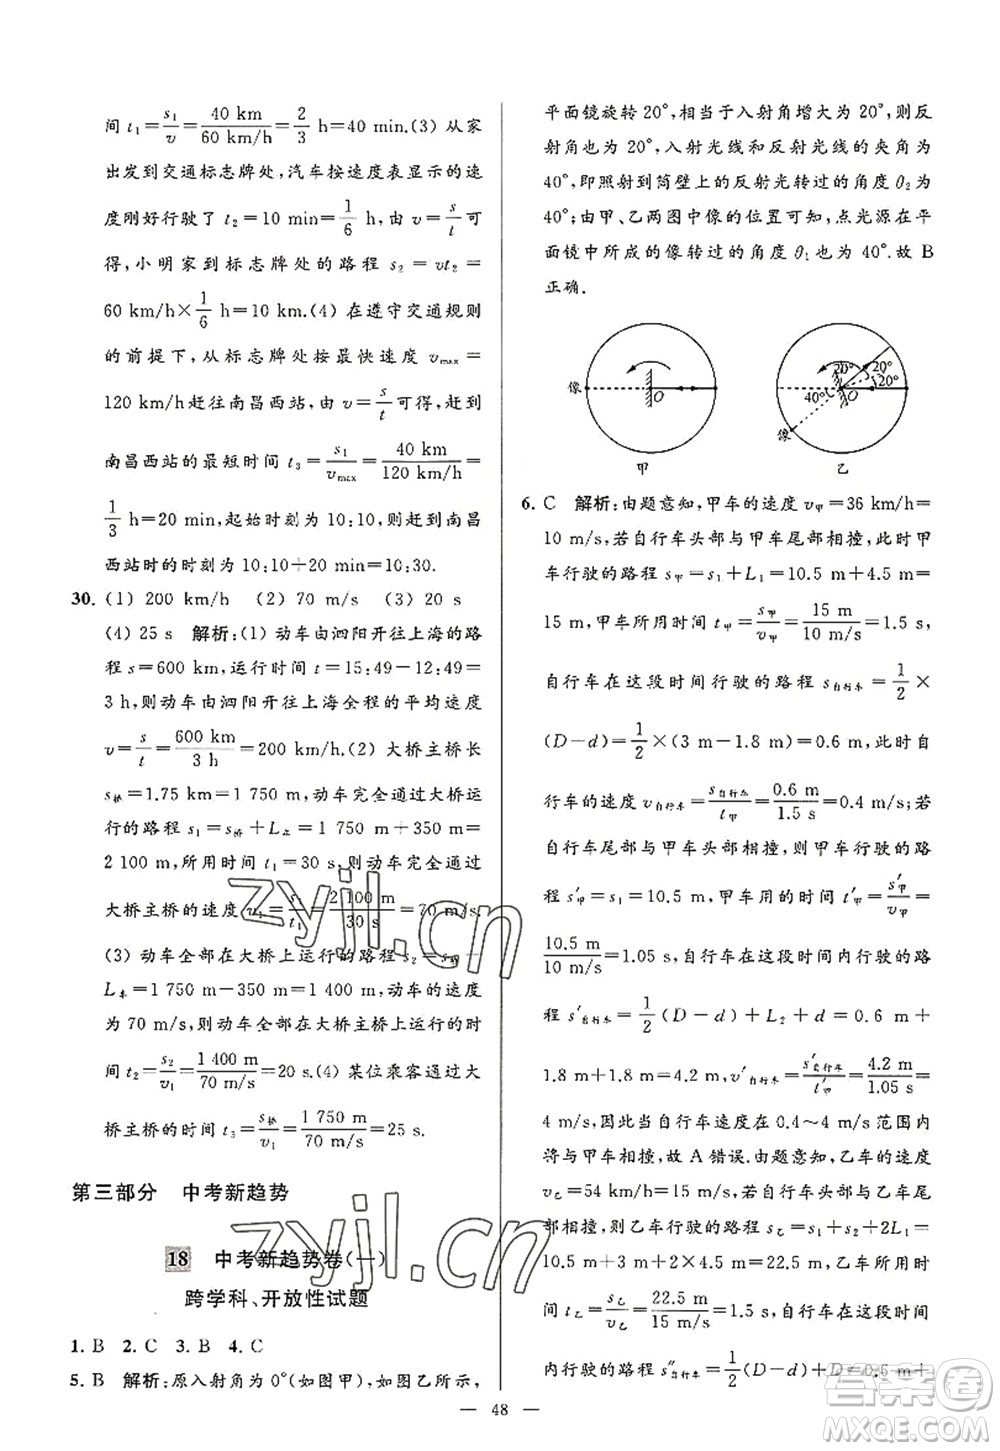 间 t₁=s₁/v=40 km/60 km/h=2/3 h=40 min.(3) 从家
出发到交通标志牌处,汽车按速度表显示的速
度刚好行驶了 t₂=10 min=1/6 h,由 v=s/t可
得,小明家到标志牌处的路程 s₂=vt₂=
60 km/h×1/6 h=10 km.(4) 在遵守交通规则
的前提下,从标志牌处按最快速度 vmax=
120 km/h赶往南昌西站,由 v=s/t可得,赶到
南昌西站的最短时间 t₃=s₁/vmax=40 km/120 km/h=
1/3 h=20 min,起始时刻为 10:10,则赶到南昌
西站时的时刻为 10:10+20 min=10:30.
30. (1) 200 km/h (2) 70 m/s (3) 20 s
(4) 25 s 解析:(1) 动车由泗阳开往上海的路
程 s=600 km,运行时间 t=15:49-12:49=
3 h,则动车由泗阳开往上海全程的平均速度
v=s/t=600 km/3 h=200 km/h.(2) 大桥主桥长
s桥=1.75 km=1 750 m,动车完全通过大桥运
行的路程 s₁=s桥+L车=1 750 m+350 m=
2 100 m,所用时间 t₁=30 s,则动车完全通过
大桥主桥的速度 v₁=s₁/t₁=2 100 m/30 s=70 m/s.
(3) 动车全部在大桥上运行的路程 s₂=s桥-
L车=1 750 m-350 m=1 400 m,动车的速度
为 70 m/s,则动车全部在大桥主桥上运行的时
间 t₂=s₂/v₁=1 400 m/70 m/s=20 s.(4) 某位乘客通过大
桥主桥的时间 t₃=s桥/v₁=1 750 m/70 m/s=25 s.
第三部分 中考新趋势
18 中考新趋势卷(一)
跨学科、开放性试题
1. B 2. C 3. B 4. C
5. B 解析:原入射角为 0°(如图甲),如图乙所示,
平面镜旋转 20°,相当于入射角增大为 20°,则反
射角也为 20°,入射光线和反射光线的夹角为
40°,即照射到筒壁上的反射光转过的角度 θ₂为
40°;由甲、乙两图中像的位置可知,点光源在平
面镜中所成的像转过的角度 θ₁也为 40°.故 B
正确.
像
O
甲
20°
20°
20°
40°
O
像
乙
6. C 解析:由题意知,甲车的速度 v甲=36 km/h=
10 m/s,若自行车头部与甲车尾部相撞,此时甲
车行驶的路程 s甲=s₁+L₁=10.5 m+4.5 m=
15 m,甲车用时间 t甲=s甲/v甲=15 m/10 m/s=1.5 s,
自行车在这段时间行驶的路程 s自行车=1/2×
(D-d)=1/2×(3 m-1.8 m)=0.6 m,此时自
行车的速度 v自行车=s自行车/t甲=0.6 m/1.5 s=0.4 m/s;若
自行车尾部与甲车头部相撞,则甲车行驶的路
程 s′甲=s₁=10.5 m,甲车用的时间 t′甲=s′甲/v甲=
10.5 m/10 m/s=1.05 s,自行车在这段时间内行驶的路
程 s′自行车=1/2(D-d)+L₂+d=0.6 m+
1.8 m+1.8 m=4.2 m,v′自行车=s′自行车/t′甲=4.2 m/1.05 s=
4 m/s,因此当自行车速度在 0.4~4 m/s范围
内时,会发生交通事故,故 A 错误.由题意知,乙车的速度
v乙=54 km/h=15 m/s,若自行车头部与乙车尾部
相撞,则乙车行驶的路程 s乙=s₁+s₂+2L₁=
10.5 m+3 m+2×4.5 m=22.5 m,乙车所用时
间 t乙=s乙/v乙=22.5 m/15 m/s=1.5 s,自行车在这段时间
内行驶的路程 s″自行车=1/2(D-d)+D=0.6 m+
48
zyjl.cn
zyjl.cn
答案圈
MXQE.COM